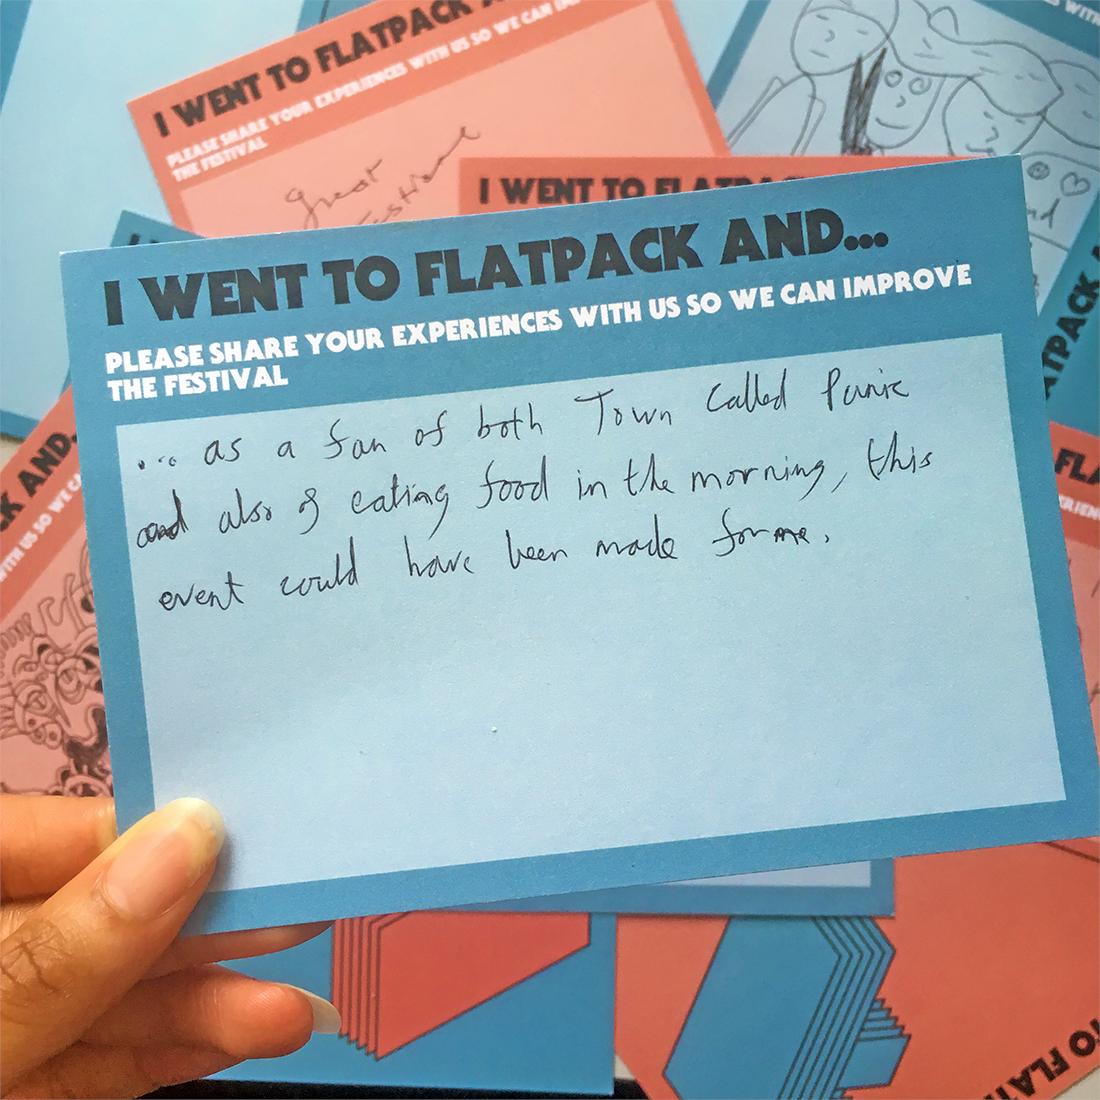 I WENT TO FLATPACK A
PLEASE SHARE YOUR EXPERIENCES WITH US SO WE CAN IM
THE FESTIVAL
Great
Festival
I WENT TO FLATPACK
I WENT TO FLATPACK AND...
PLEASE SHARE YOUR EXPERIENCES WITH US SO WE CAN IMPROVE
THE FESTIVAL
... as a fan of both Town Called Panic
and also of eating food in the morning, this
event could have been made for me.
CK AND.
WITH US SO WE CA
ATPACK
FLA
TO FLAT